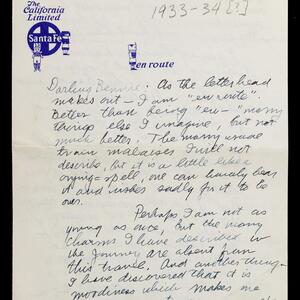 The
California
Limited
Santa Fe
1933-34 [?]
en route
Darling Bennie: As the letterhead
makes out — I am "en route".
Better than being "en - many
things else I imagine, but not
much better. The many usual
train malaises I will not
describe, but it is a little like a
crying-spell, one can barely bear
it and wishes sadly for it to be
over.
Perhaps I am not as
young as once, but the many
charms I have described in
the Journey are absent from
this travel. And another thing -
I have discovered that it is
moodiness which makes me